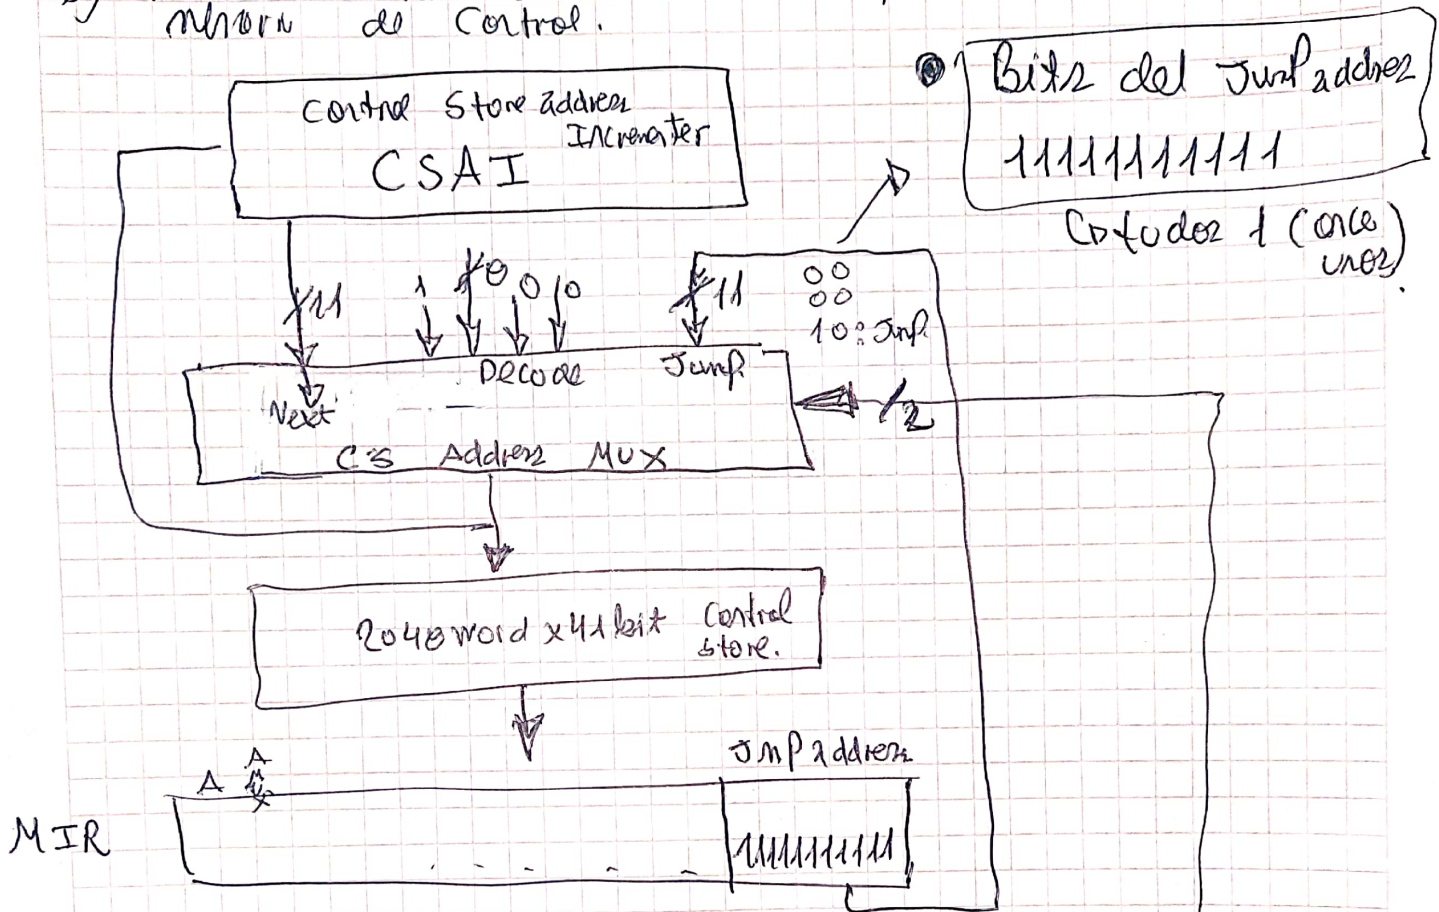 de Control.
Control Store address
Incrementer
CSAI
Bits del Jump addres
11111111111
(once
unos)
11
1 0 0 0
11
00
00
10: Jmp.
Decode
Jump.
Next
2
CS Address MUX
2048 word x 41 bit Control
store.
JMP address
A
A
M
U
X
MIR
11111111111